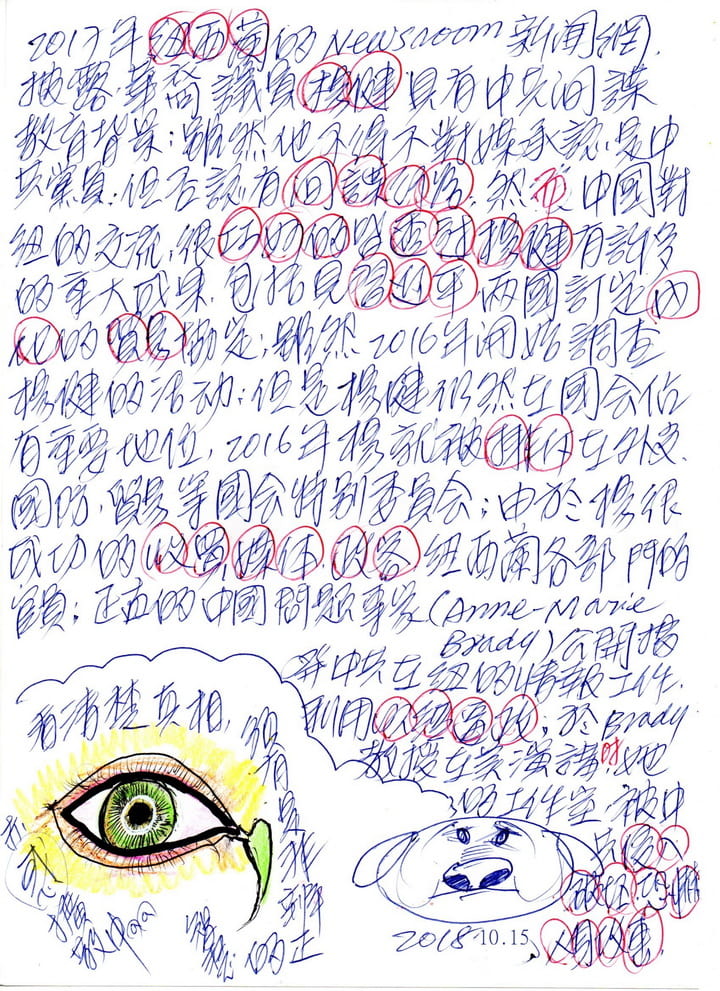 2017年紐西蘭的Newsroom新聞網,
披露華裔議員楊健具有中共间諜
教育背景;雖然他不得不對媒承認是中
共黨員;但否認有间諜行為.然而中國對
紐的交流,很巧妙的皆委託楊健有許多
的重大成果,包括見習近平兩國訂定内
化的貿易協定;雖然2016年開始調查
楊健的活动;但是楊健仍然在國会佔
有重要地位,2016年楊就被排行在外交.
國防,貿易等國会特别委員会;由於楊很
成功的收買媒体,政客紐西蘭各部門的
官員;正直的中國問題專家(Anne-Marie
Brady)公開揭
弊中共在紐的情報工作.
利用以紐害政;於Brady
教授在美演講时她
的工作室被中
共侵入
破坏恐嚇
2018 10.15
看清楚真相,
須有是非
的正